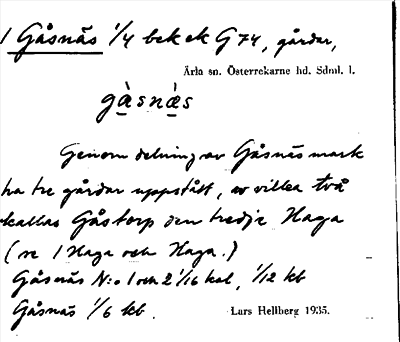 1 Gåsnäs 1/4 bek ek G 74, gårdar,
Ärla sn. Österrekarne hd. Sdml. l.
gàsnæ̀s
Genom delning av Gåsnäs mark
ha tre gårdar uppstått, av vilka två
kallas Gåstorp den tredje Haga
(se 1 Haga och Haga.)
Gåsnäs N:o 1 och 2 1/16 kol, 1/12 kb
Gåsnäs 1/6 kb.
Lars Hellberg 1935.